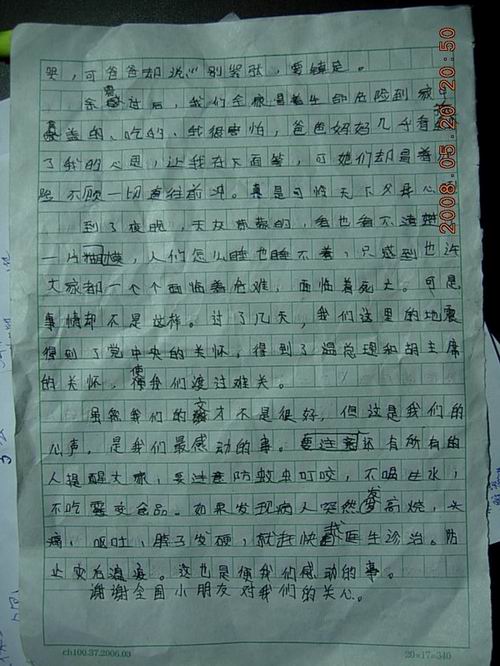 哭，可爸爸却说"别紧张，要镇定。
余震过后，我们全家冒着生命危险到家中
盖的、吃的，我很害怕，爸爸妈妈几乎看
了我的心思，让我在下面等，可她们却冒着
险不顾一切直往前冲。真是可怜天下父母心
到了夜晚，天灰蒙蒙的，看也看不清楚
一片，人们怎么睡也睡不着，只感到也许
大家都一个个面临着危难，面临着死亡。可是
事情却不是这样。过了几天，我们这里的地震
得到了党中央的关怀，得到了温总理和胡主席
的关怀，使我们渡过难关。
虽然我们的文才不是很好，但这是我们的
心声，是我们最感动的事。还有所有的
人提醒大家，要注意防蚊虫叮咬，不喝生水，
不吃霉变食品。如果发现病人突然发高烧，头
痛，呕吐，脖子发硬，就赶快找医生诊治。防
止灾后瘟疫。这也是使我们感动的事。
谢谢全国小朋友对我们的关心。
ch100.37.2006.03
20×17=340
2008.05.20 20:50